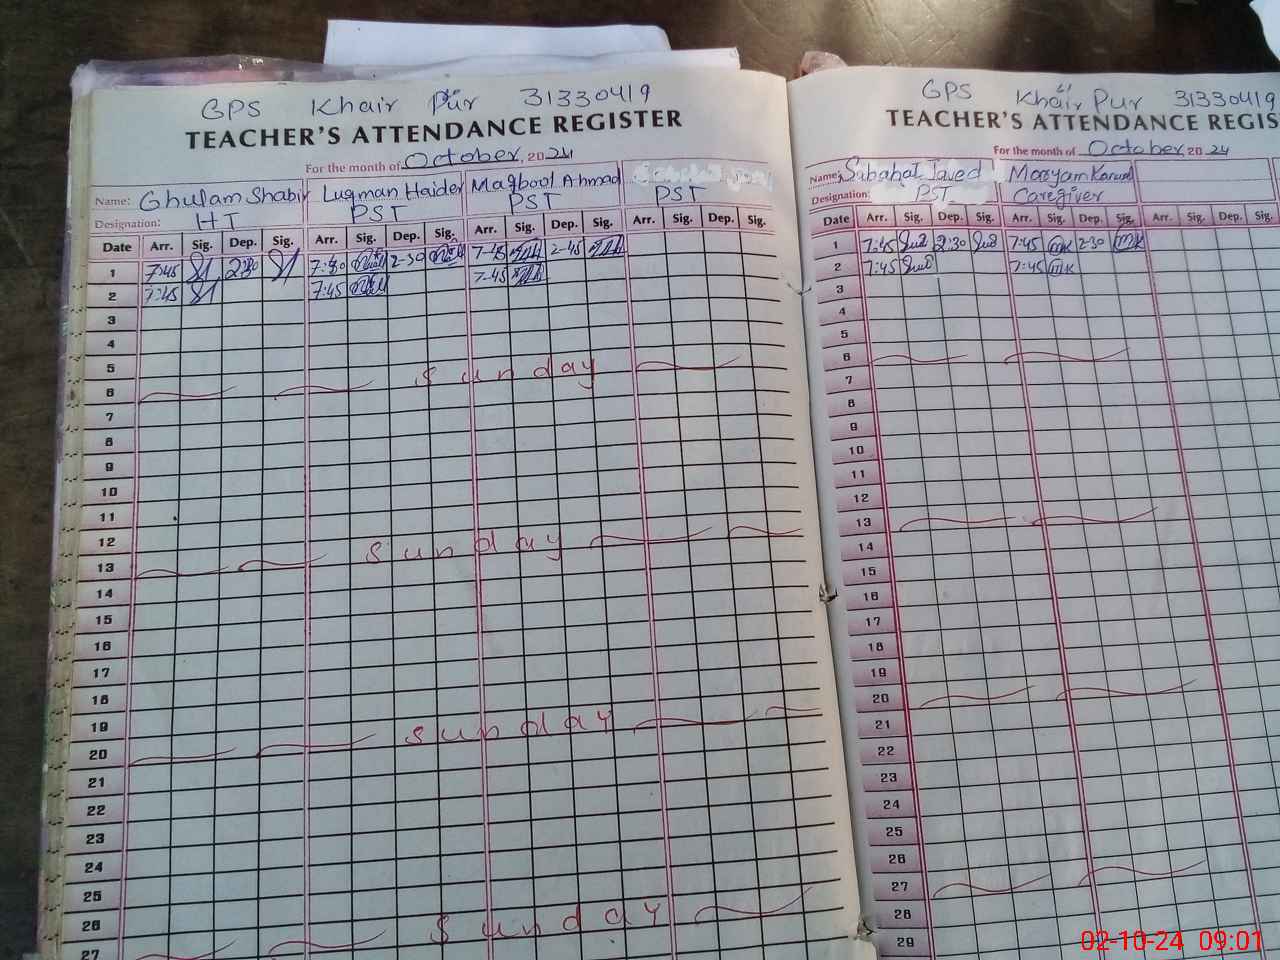 GPS Khair Pur 31330419
TEACHER'S ATTENDANCE REGISTER
For the month of October, 2024
Name: Ghulam Shabir Luqman Haider Maqbool Ahmad
Designation: HT PST PST PST
Date Arr. Sig. Dep. Sig. Arr. Sig. Dep. Sig. Arr. Sig. Dep. Sig. Arr. Sig. Dep. Sig.
1 7:45 2:30 7:30 2-30 7-45 2-45
2 7:45 7:45 7-45
3
4
5
6 Sunday
7
8
9
10
11
12
13 Sunday
14
15
16
17
18
19
20 Sunday
21
22
23
24
25
26
27 Sunday
GPS Khair Pur 31330419
TEACHER'S ATTENDANCE REGIS
For the month of October 2024
Name: Sabahat Javed Maryam Kanwal
Designation: PST Caregiver
Date Arr. Sig. Dep. Sig. Arr. Sig. Dep. Sig. Arr. Sig. Dep. Sig.
1 7:45 2:30 7:45 mk 2-30 mk
2 7:45 7:45 mk
3
4
5
6
7
8
9
10
11
12
13
14
15
16
17
18
19
20
21
22
23
24
25
26
27
28
29
02-10-24 09:01